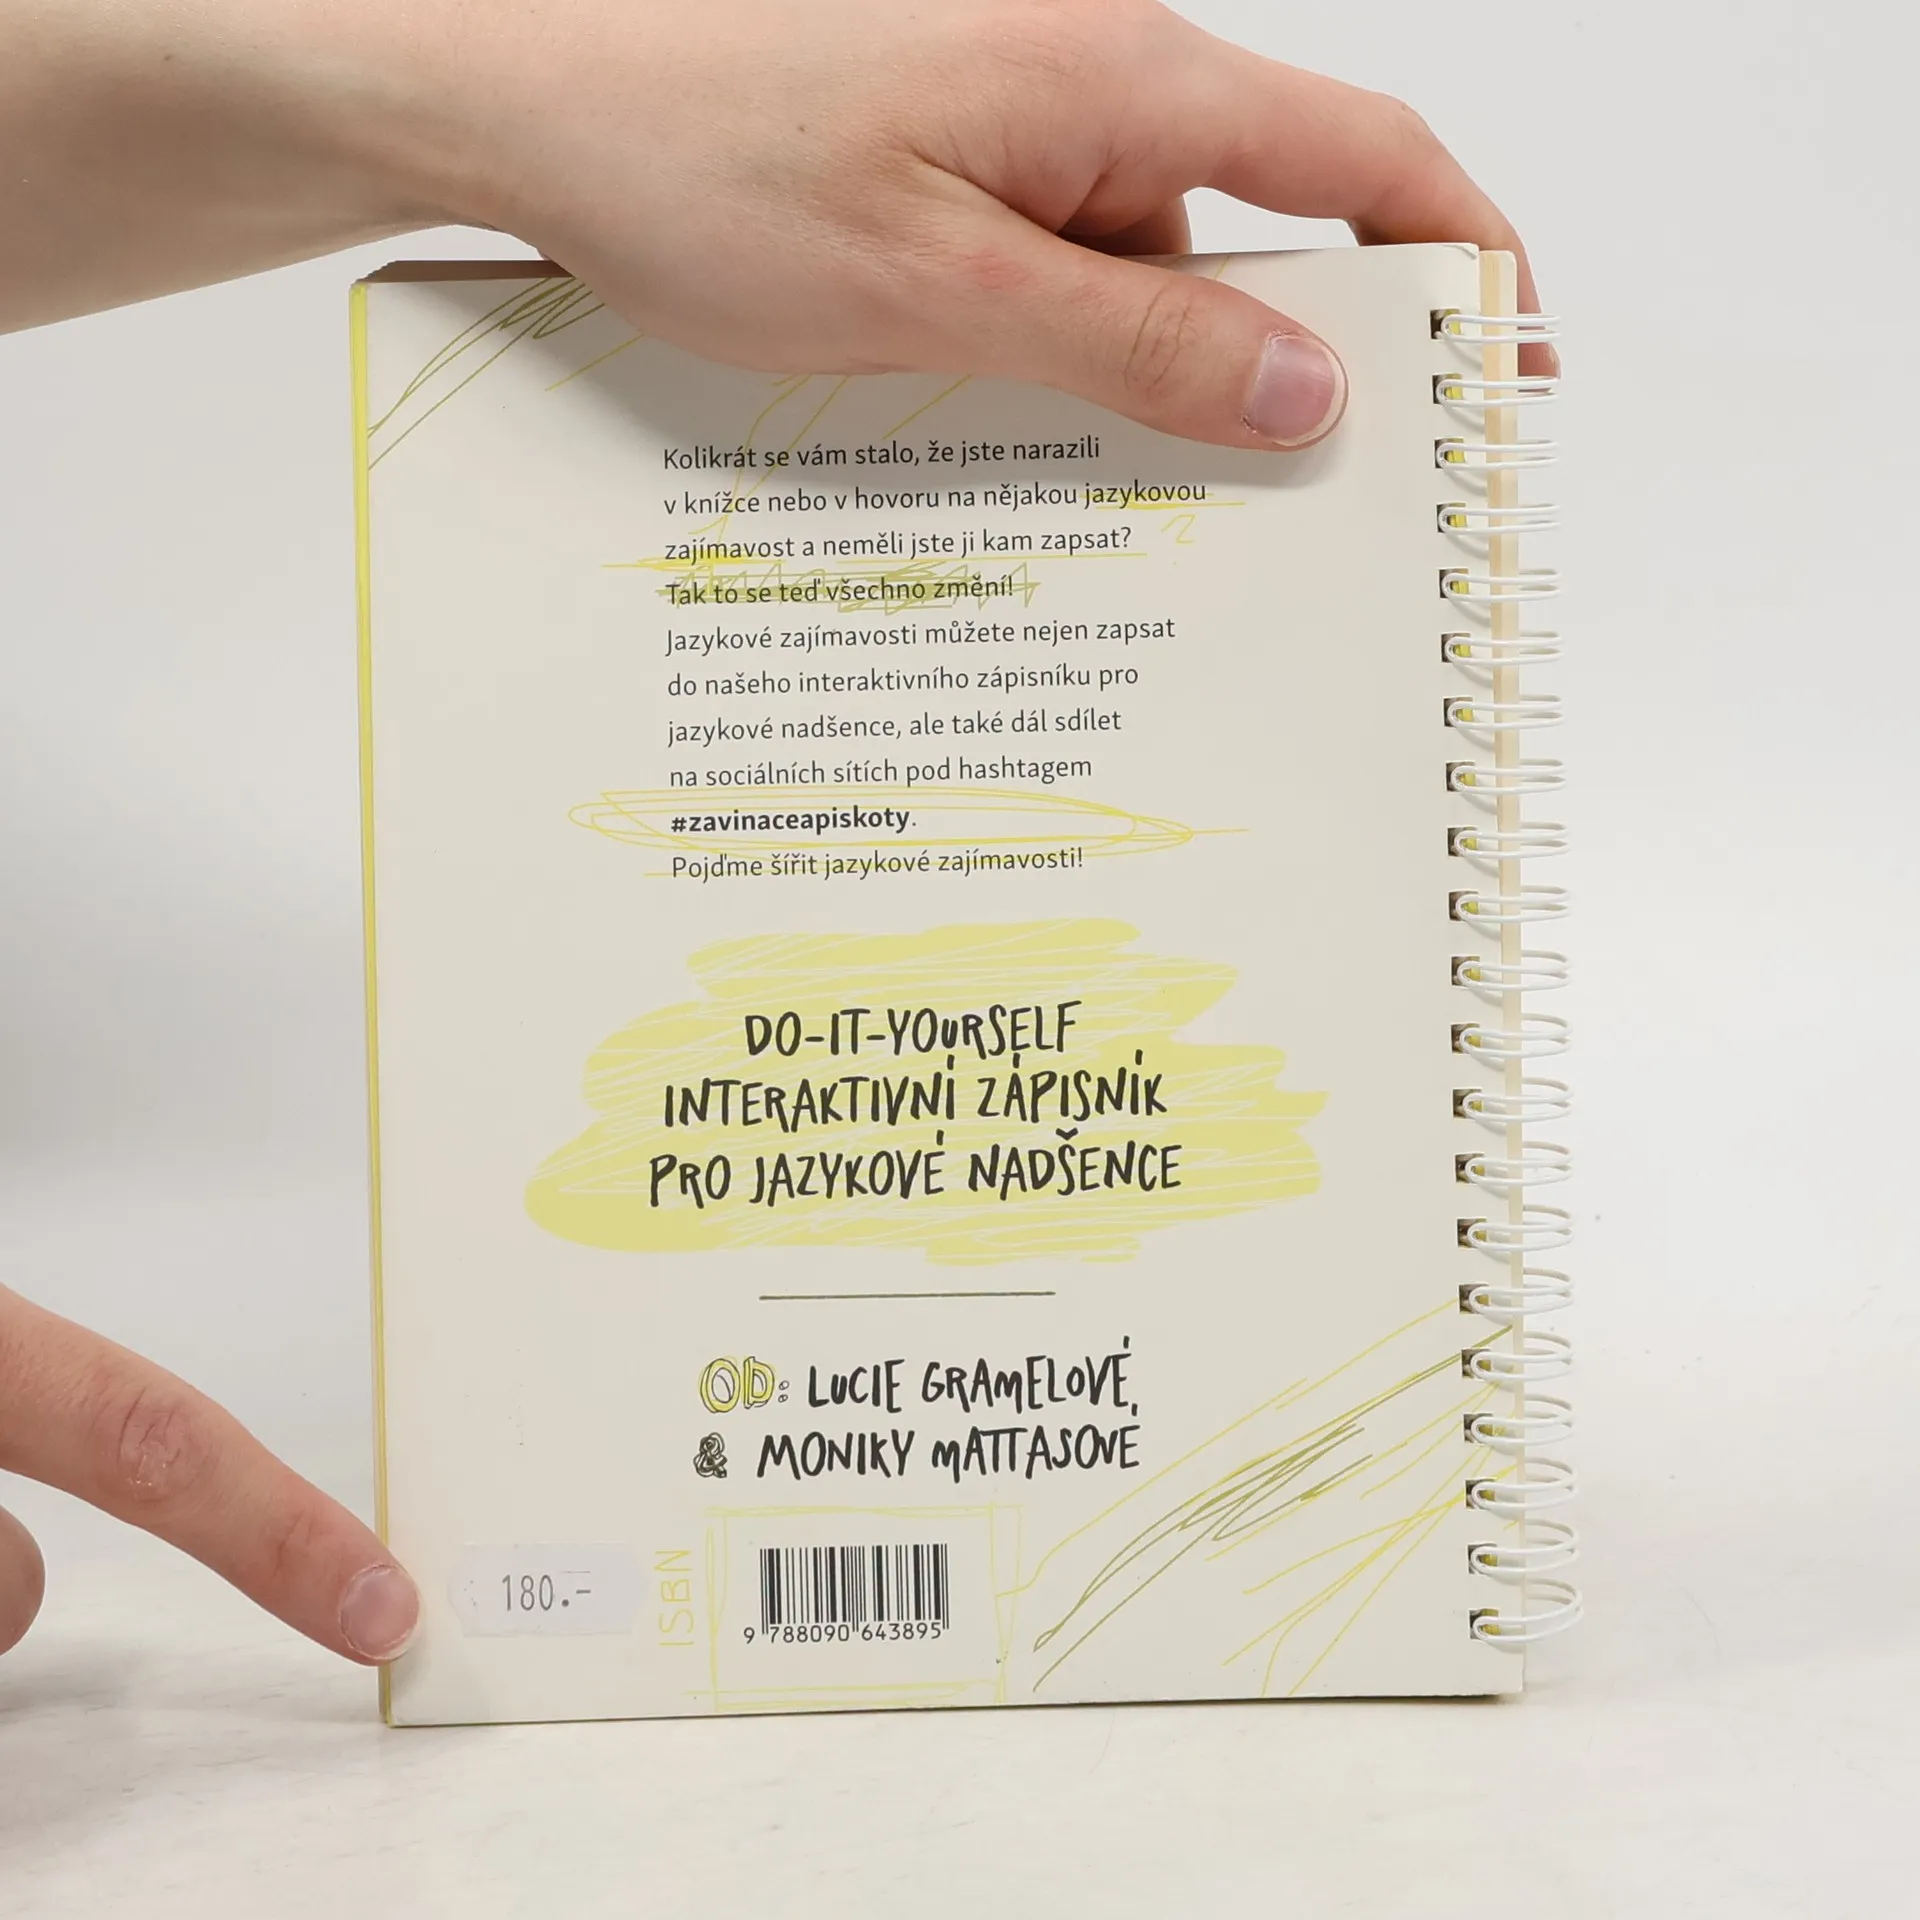 Kolikrát se vám stalo, že jste narazili
v knížce nebo v hovoru na nějakou jazykovou
zajímavost a neměli jste ji kam zapsat?
Tak to se teď všechno změní!
Jazykové zajímavosti můžete nejen zapsat
do našeho interaktivního zápisníku pro
jazykové nadšence, ale také dál sdílet
na sociálních sítích pod hashtagem
#zavinaceapiskoty.
Pojďme šířit jazykové zajímavosti!
DO-IT-YOURSELF
INTERAKTIVNÍ ZÁPISNÍK
PRO JAZYKOVÉ NADŠENCE
OD: LUCIE GRAMELOVÉ
& MONIKY MATTASOVÉ
180.-
ISBN
9 788090 643895